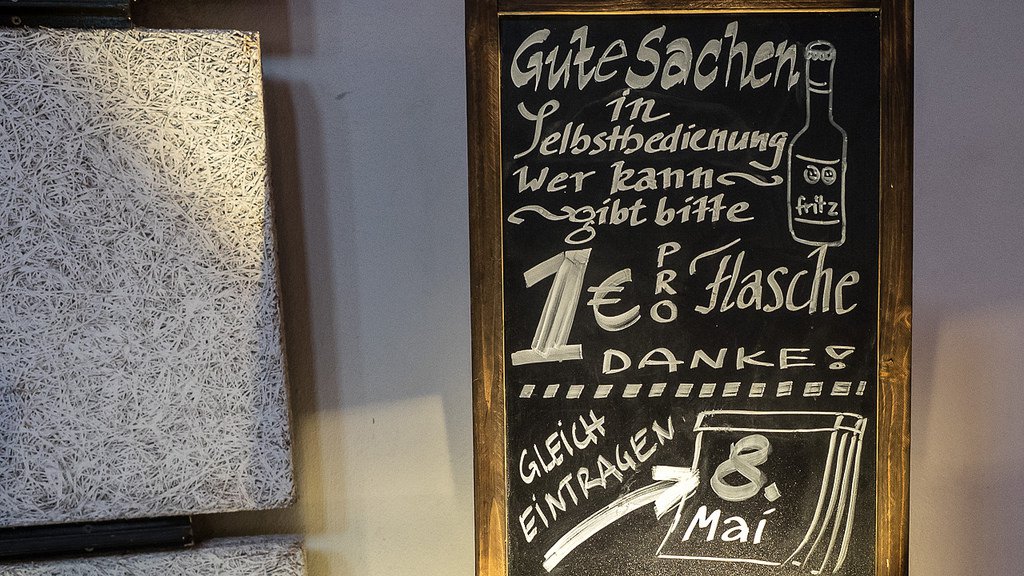 Gute Sachen
in
Selbstbedienung
Wer kann
gibt bitte
fritz
1 € PRO Flasche
DANKE!
GLEICH
EINTRAGEN
8.
Mai